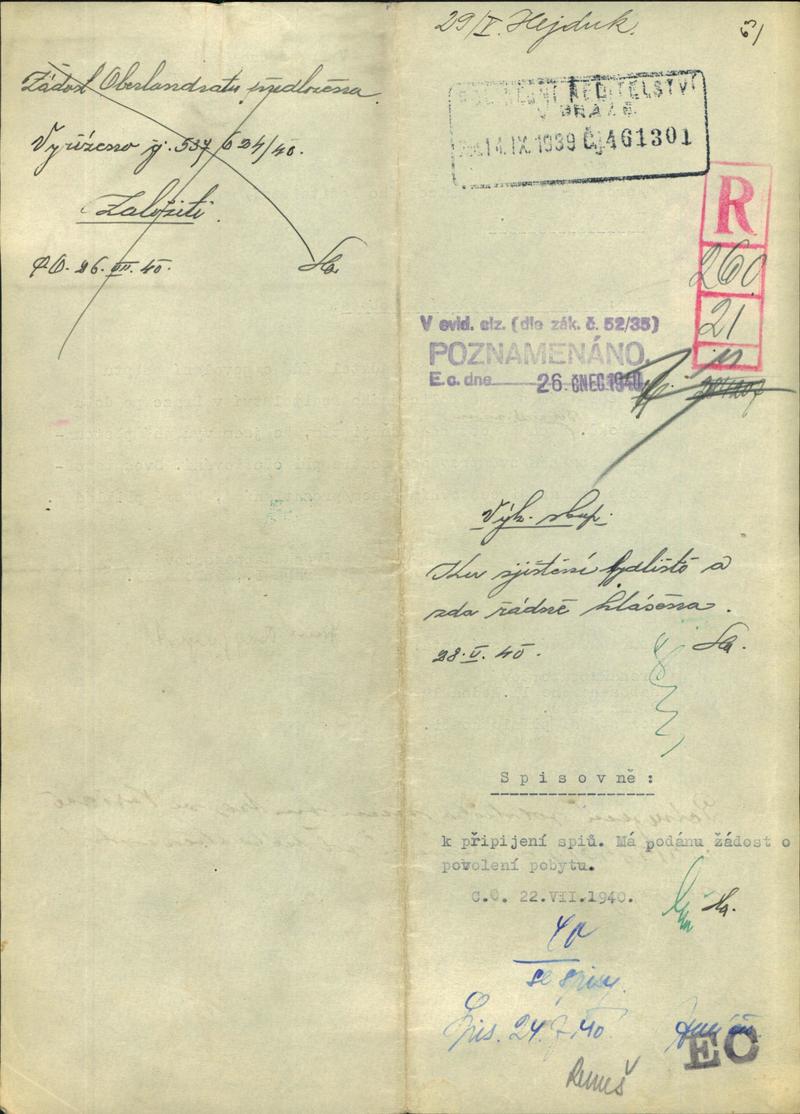 Žádost Oberlandratu předložena
Vyřízeno čj. 537 024/40.
Založiti.
PO. 26. VII. 40. Ha
29/V. Hejduk.
63/
POLICEJNÍ ŘEDITELSTVÍ
V PRAZE
14. IX. 1939 Čj 461301
R
260
21
V evid. ciz. (dle zák. č. 52/35)
POZNAMENÁNO.
E. c. dne 26. ČNEC 1940
Výk. skup.
Ku zjištění bydliště a
zda řádně hlášena.
28. V. 40. Ha.
Spisovně:
k připijení spiů. Má podánu žádost o
povolení pobytu.
C.O. 22.VII.1940. Ha.
se spisy.
Spis. 24.7.40
EO